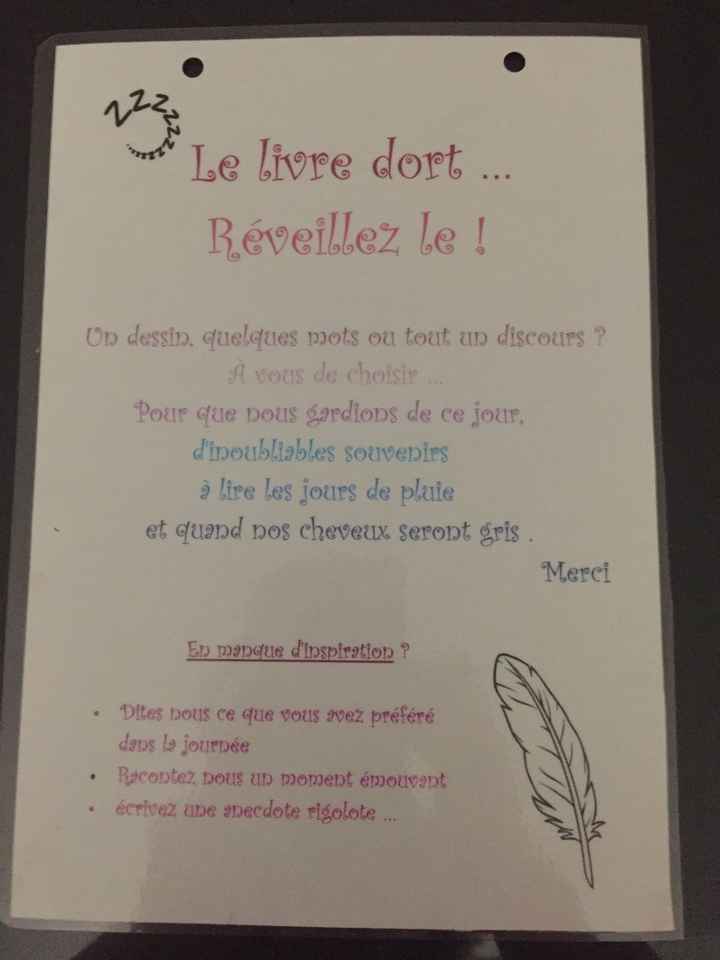 ZZZZZZZzzz.....
Le livre dort ...
Réveillez le !
Un dessin, quelques mots ou tout un discours ?
À vous de choisir ...
Pour que nous gardions de ce jour,
d'inoubliables souvenirs
à lire les jours de pluie
et quand nos cheveux seront gris .
Merci
En manque d'inspiration ?
• Dites nous ce que vous avez préféré
dans la journée
• Racontez nous un moment émouvant
• écrivez une anecdote rigolote ...